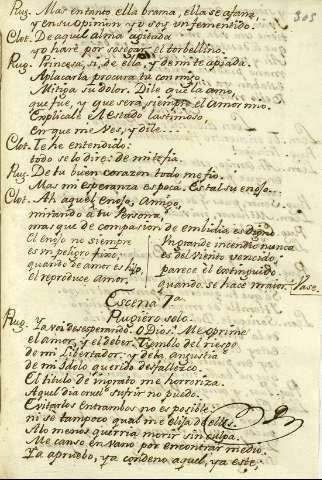 305
Rug. Mas entanto ella brama, ella se afana,
y en su opinion yo soy un fementido.
Clot. De aquel alma agitada
yo haré por sosegar el torbellino.
Rug. Princesa, si, de ella, y de mi te apiada.
Aplacarla procura tu conmigo.
Mitiga su dolor. Dile que la amo,
que fue, y que será siempre el Amor mio.
Explicale el estado lastimoso,
en que me ves, y dile...
Clot. Te he entendido:
todo se lo diré: de mi te fia.
Rug. De tu buen corazon todo me fio.
Mas mi esperanza es poca. Es tal su enojo...
Clot. Ah aquel enojo, Amigo,
mirando a tu Persona,
mas que de compasion de embidia es digno
El enojo no siempre
es un peligro fixo,
quando de amor es hijo,
el reproduce amor.
Un grande incendio nunca
es del viento vencido,
parece el extinguido
quando se hace maior. Vase.
Escena 7a.
Rugiero solo.
Rug. Ya voi desesperando. O Dios! Me oprime
el amor, y el deber. Tiemblo del riesgo
de mi Libertador: y de la angustia
de mi Idolo querido desfallezco.
El titulo de ingrato me horroriza.
Aquel dia cruel sufrir no puedo.
Evitarlos entrambos no es posible:
ni se tampoco qual me elija de ellos.
Alo menos querria morir sin culpa.
Me canso en vano por encontrar medio.
Ya apruebo, ya condeno aquel, ya este;